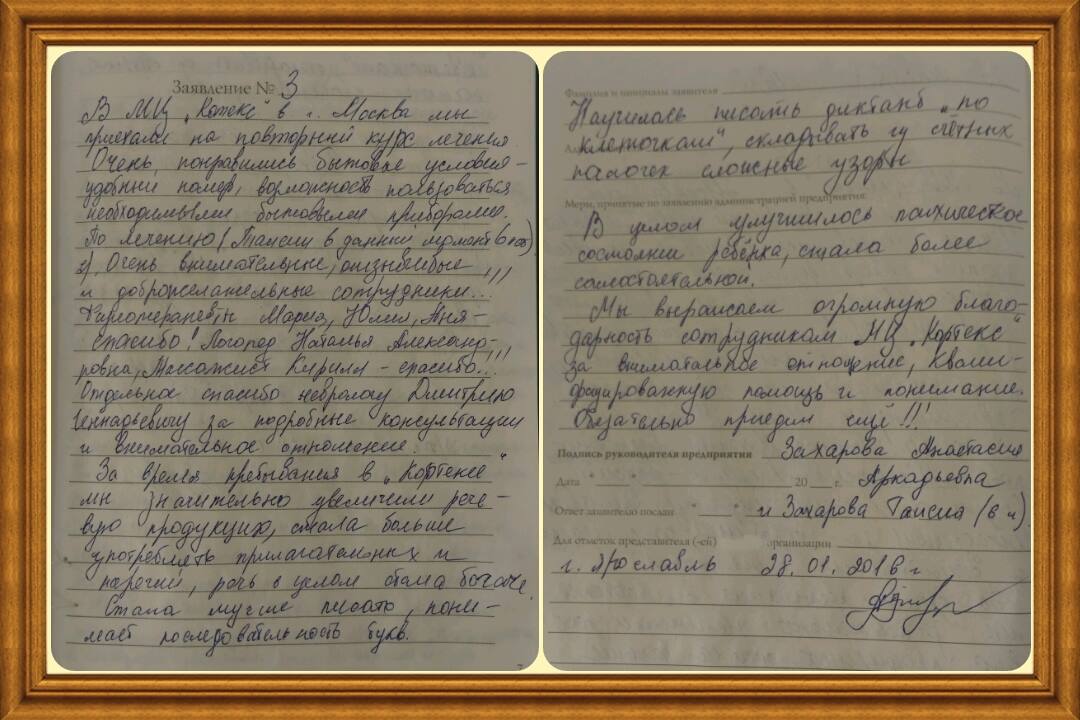 Заявление № 3
В МЦ „Кортекс" в г. Москва мы
приехали на повторный курс лечения.
Очень понравились бытовые условия –
удобный номер, возможность пользоваться
необходимыми бытовыми приборами.
По лечению (Таисии в данный момент 6 лет)
Очень внимательные, отзывчивые
и доброжелательные сотрудники...!!!
Мария, Юлия, Аня –
спасибо! Логопед Наталья Александ-
ровна, Массажист Кирилл – спасибо...!!!
Отдельное спасибо неврологу Дмитрию
Геннадьевичу за подробные консультации
и внимательное отношение.
За время пребывания в „Кортексе"
мы значительно увеличили рече-
вую продукцию, стала больше
употреблять прилагательных и
наречий, речь в целом стала богаче.
Стала лучше писать, пони-
мает последовательность букв.
Фамилия и инициалы заявителя
Научилась писать диктант „по
клеточкам", складывать из счётных
палочек сложные узоры
Меры, принятые по заявлению администрацией предприятия:
В целом улучшилось психическое
состояние ребёнка, стала более
самостоятельной.
Мы выражаем огромную благо-
дарность сотрудникам МЦ „Кортекс"
за внимательное отношение, квали-
фицированную помощь и понимание.
Обязательно приедем ещё!!!
Подпись руководителя предприятия Захарова Анастасия
Дата " " 20 г. Аркадьевна
Ответ заявителю послан " " и Захарова Таисия (6 л)
Для отметок представителя (-ей) организации
г. Ярославль 28.01.2016 г